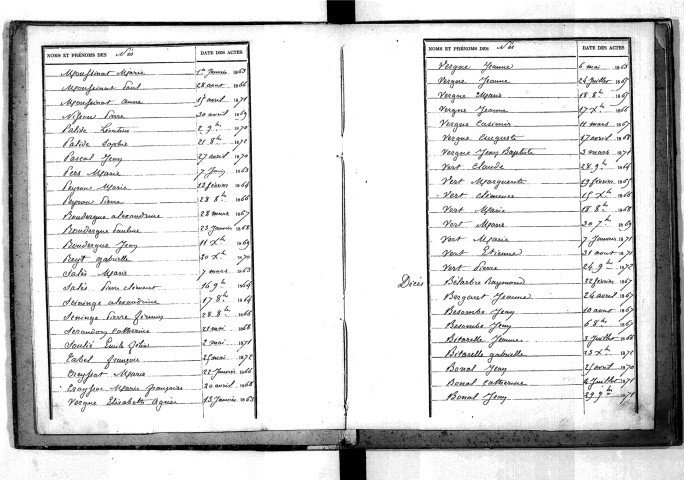 NOMS ET PRÉNOMS DES Nés DATE DES ACTES
Moussinat Marie 1er Janvier 1863
Moussinat Paul 28 aout 1866
Moussinat anne 15 avril 1871
Nissou Pierre 30 avril 1869
Palide Léontine 2 9bre 1870
Palide Sophie 21 8bre 1871
Pascal Jean 27 avril 1870
Pers Marie 7 Juin 1863
Peyrou Marie 12 février 1864
Peyrou Pierre 28 8bre 1866
Boudergue alexandrine 28 mars 1867
Boudergue Pauline 23 Janvier 1868
Boudergue Jean 11 Xbre 1869
gabrielle 20 Xbre 1871
Salès Marie 7 mars 1863
Salès Pierre Clément 16 9bre 1864
Séninge alexandrine 17 8bre 1864
Séninge Pierre Firmin 28 8bre 1866
Catherine 21 mai 1868
Soulié Emile 2 mai 1871
Tabel françois 25 mai 1872
Marie 22 Janvier 1866
Marie françoise 20 avril 1868
Vergne Elisabeth Agnès 13 Janvier 1863
NOMS ET PRÉNOMS DES Nés DATE DES ACTES
Vergne Jeanne 6 mai 1863
Vergne Jeanne 24 Juillet 1865
Vergne Marie 18 8bre 1865
Vergne Jeanne 17 Xbre 1866
Vergne Casimir 11 mars 1867
Vergne Auguste 17 avril 1868
Vergne Jean Baptiste 3 mars 1871
Vert Claude 28 9bre 1864
Vert Marguerite 19 février 1865
Vert Clémence 15 Xbre 1866
Vert Marie 18 8bre 1868
Vert Marie 30 7bre 1869
Vert Marie 7 Janvier 1871
Vert Etienne 31 aout 1871
Vert Pierre 24 9bre 1872
Décés Bélarbre Raymond 22 février 1867
Bergaret Jeanne 26 avril 1867
Besombe Jean 10 aout 1867
Besombe Jean 6 8bre 1867
Bitarelle Jeanne 3 Juillet 1866
Bitarelle gabrielle 23 Xbre 1872
Bonal Jean 25 avril 1870
Bonal Catherine 4 Juillet 1871
Bonal Jean 29 9bre 1871